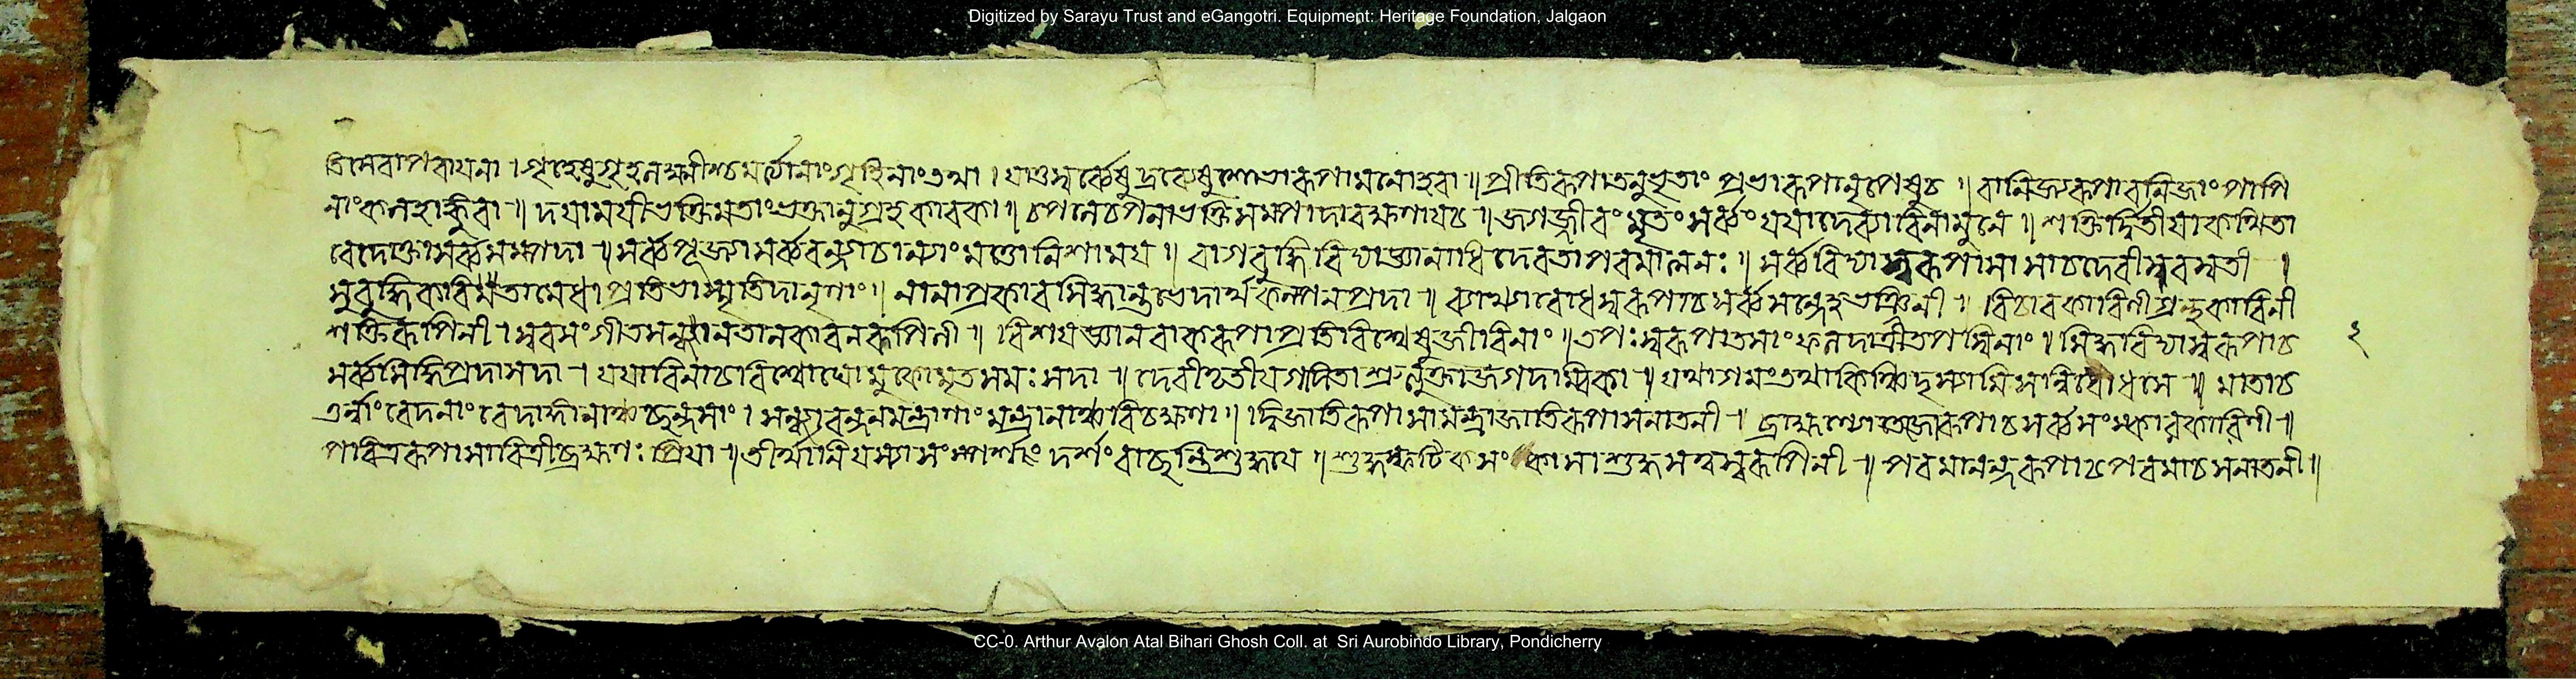 তিসেবাপরায়ণা । গৃহেষুগৃহলক্ষ্মীশ্চমর্ত্ত্যানাংগৃহিণাংতথা । যাশুসর্ব্বেষুদ্রব্যেষুশোভারূপামনোহরা ॥ প্রীতিরূপাতনুভৃতাং প্রভারূপানৃপেষুচ । বানিজ্যরূপাবনিজাং পাপি
নাংকলহাঙ্কুরা ॥ দয়াময়ীভক্তিমতাংভক্তানুগ্রহকারকা ॥ চপলেচপলাভক্তিসম্পদোরক্ষণায়চ ॥ জগজ্জীবংমৃতংসর্ব্বংযয়াদেব্যাবিনামুনে ॥ শক্তির্দ্বিতীয়াকথিতা
বেদোক্তাসর্ব্বসম্পদা ॥ সর্ব্বপূজ্যাসর্ব্ববন্দ্যাচান্যাংমত্তোনিশাময় ॥ বাগবুদ্ধিবিদ্যাজ্ঞানাধিদেবতাপরমাত্মনঃ ॥ সর্ব্ববিদ্যাস্বরূপাসাসাচদেবীসরস্বতী ।
সুবুদ্ধিকবিতামেধাপ্রতিভাস্মৃতিদানৃণাং ॥ নানাপ্রকারসিদ্ধান্তভেদার্থকল্পনপ্রদা ॥ ব্যাখ্যাবোধস্বরূপাচসর্ব্বসন্দেহভঞ্জিনী ॥ বিচারকারিণীগ্রন্থকারিনী
শক্তিরূপিনী । স্বরসংগীতসন্ধানতালকারনরূপিণী ॥ বিশয়জ্ঞানবাকরূপাপ্রতিবিশ্বেষুজীবিনাং ॥ তপঃস্বরূপাতপসাংফলদাত্রীতপস্বিনাং । সিদ্ধবিদ্যাস্বরূপাচ ২
সর্ব্বসিদ্ধিপ্রদাসদা । যয়াবিনাচবিশ্বোঘোমুকোমৃতসমঃসদা ॥ দেবীতৃতীয়াগদিতাশ্রুত্যুক্তাজগদাম্বিকা ॥ যথাগমংতথাকিঞ্চিদ সন্নিবোধমে ॥ মাতাচ
বেদনাংবেদাঙ্গানাঞ্চছন্দসাং । সন্ধ্যাবন্দনমন্ত্রাণাংমন্ত্রানাঞ্চবিচক্ষণা ॥ দ্বিজাতিরূপা জাতিরূপাসনাতনী ॥ ব্রাহ্মণ্যতেজোরূপাচসর্ব্বসংস্কারকারিণী ॥
পবিত্ররূপাসাবিত্রীব্রহ্মণঃপ্রিয়া ॥ তীর্থানিযস্যাসংস্পর্শং দর্শং বাঞ্ছন্তিশুদ্ধায় ॥ শুদ্ধস্ফটিকসংকাসাশুদ্ধসত্বস্বরূপিনী ॥ পরমানন্দরূপাচপরমাচসনাতনী ॥
Digitized by Sarayu Trust and eGangotri. Equipment: Heritage Foundation, Jalgaon
CC-0. Arthur Avalon Atal Bihari Ghosh Coll. at Sri Aurobindo Library, Pondicherry